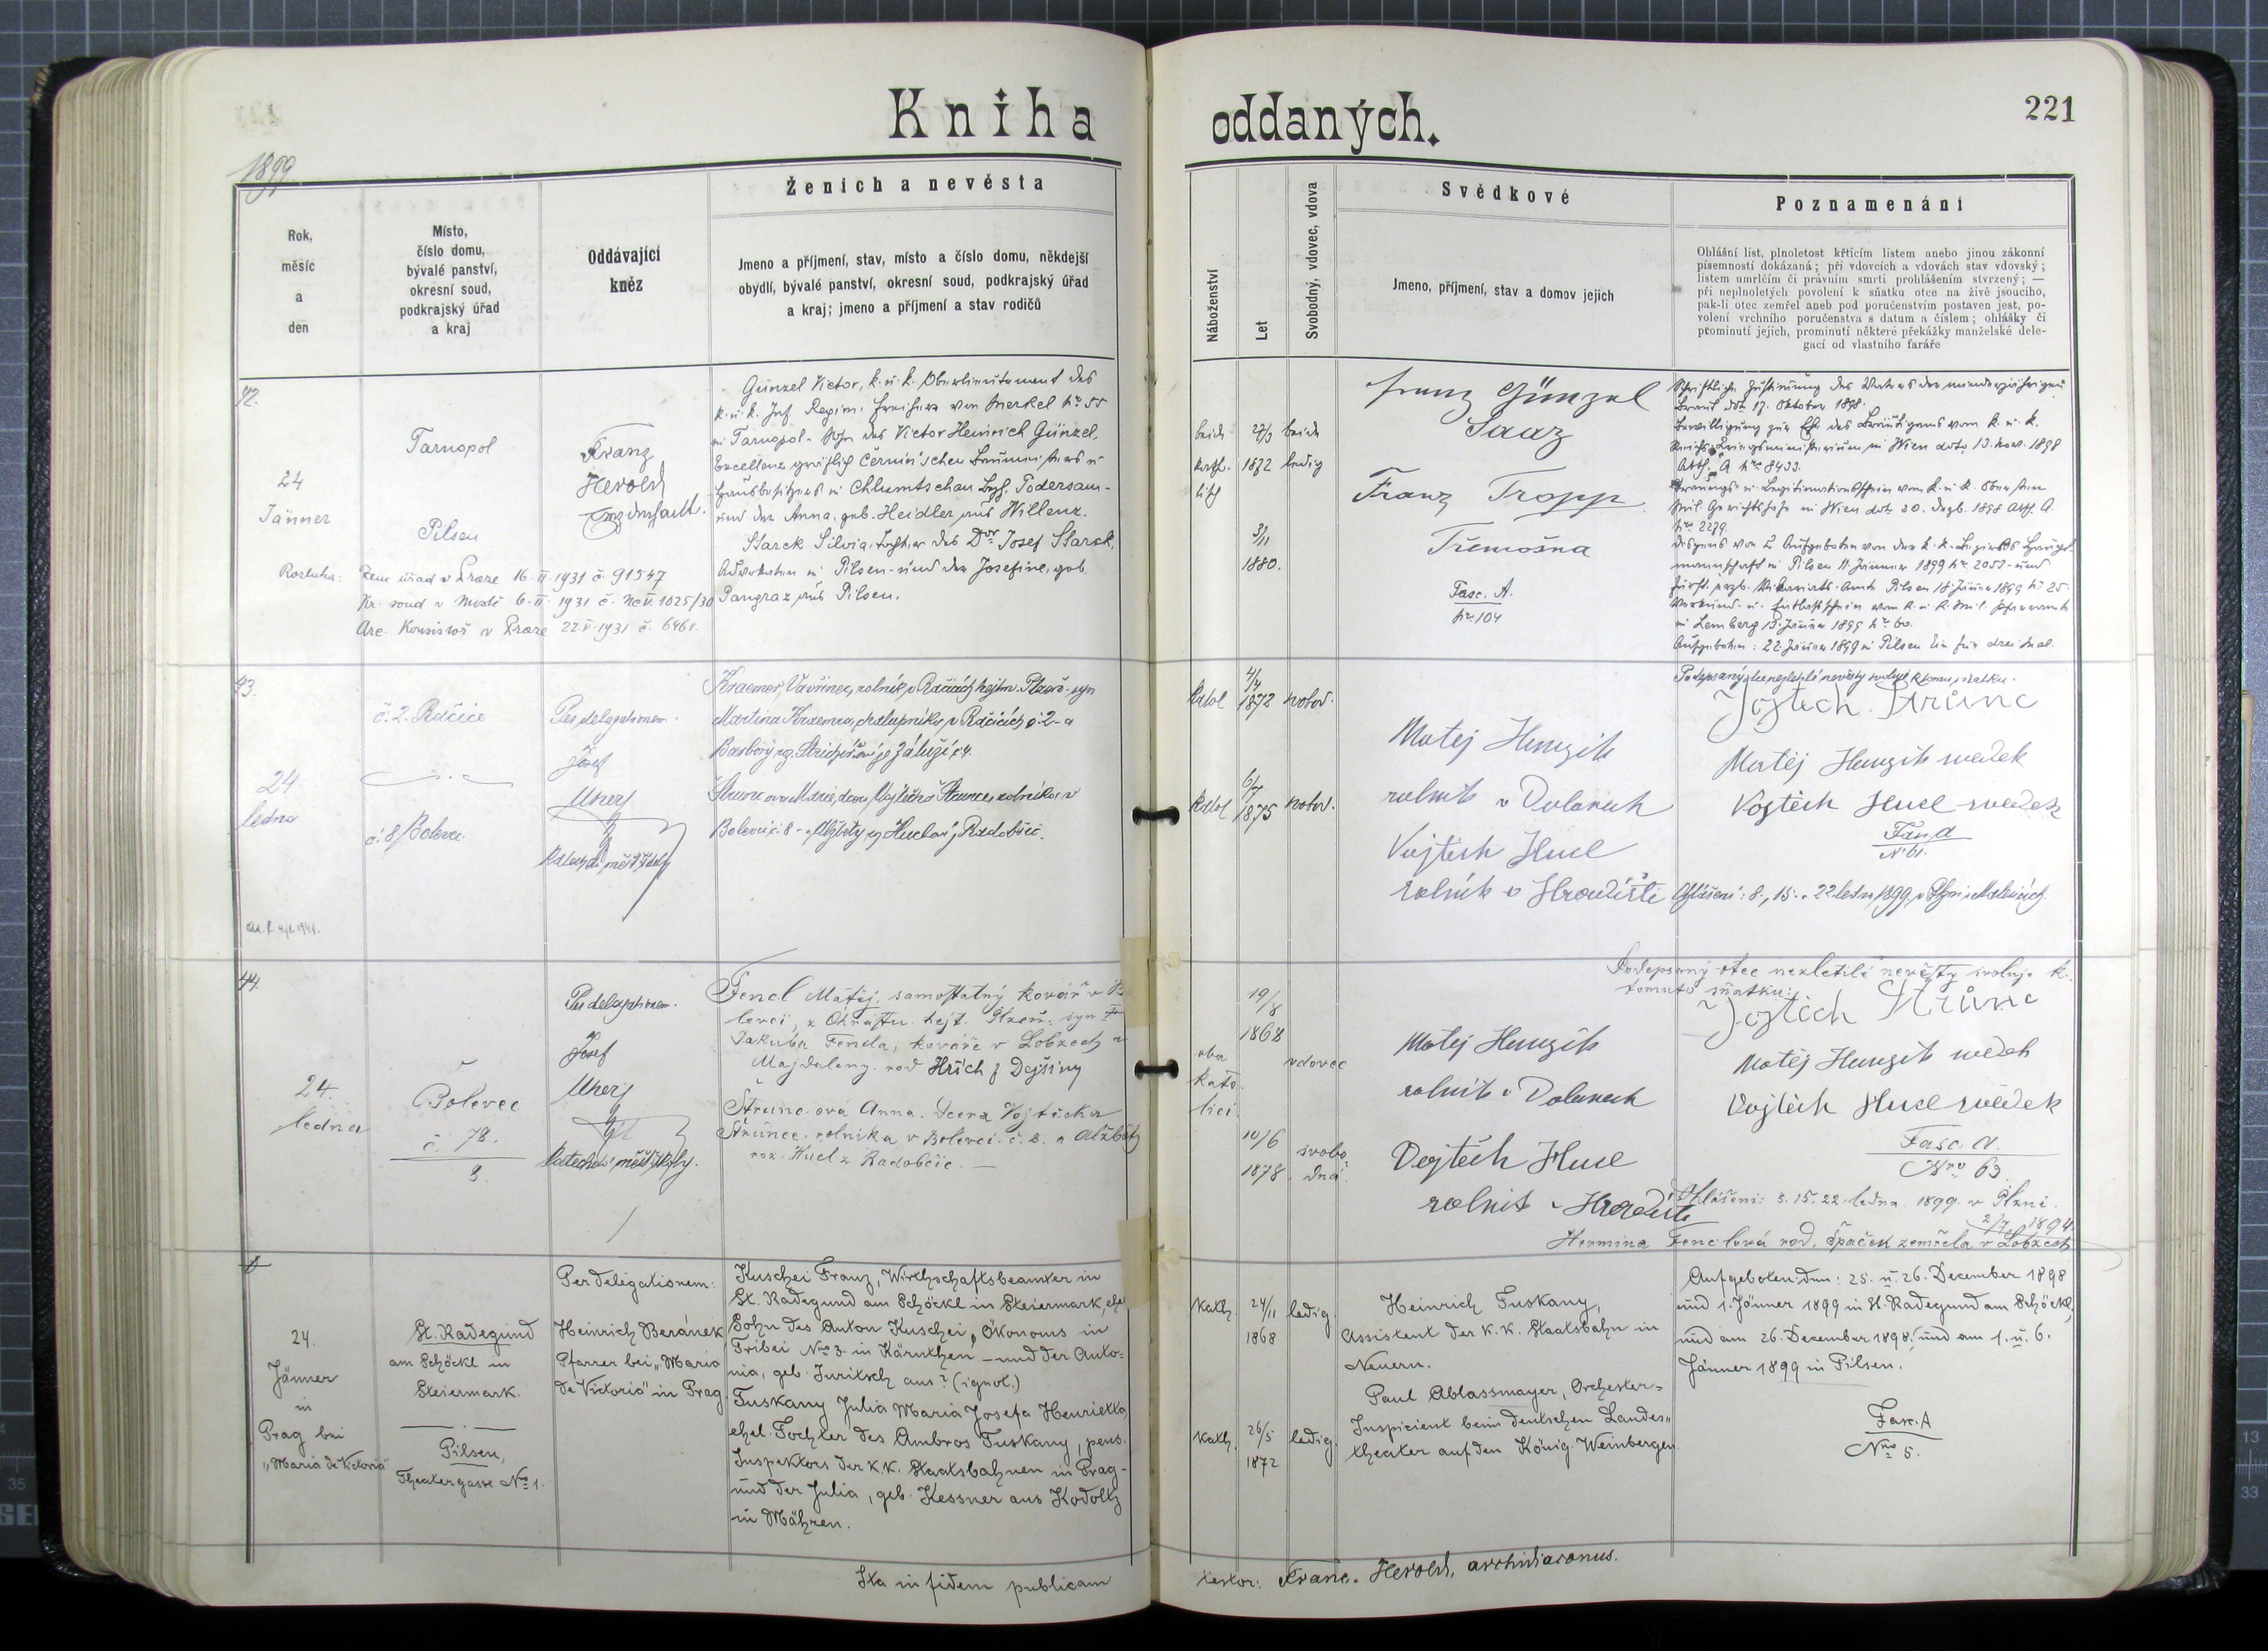 Kniha oddaných.
221
1899
Rok,
měsíc
a
den
Místo,
číslo domu,
bývalé panství,
okresní soud,
podkrajský úřad
a kraj
Oddávající
kněz
Ženich a nevěsta
Jmeno a příjmení, stav, místo a číslo domu, někdejší
obydlí, bývalé panství, okresní soud, podkrajský úřad
a kraj; jmeno a příjmení a stav rodičů
Náboženství
Let
Svobodný, vdovec, vdova
Svědkové
Jmeno, příjmení, stav a domov jejich
Poznamenání
Ohlášní list, plnoletost křticím listem anebo jinou zákonní
písemností dokázaná; při vdovcích a vdovách stav vdovský;
listem umrlčím či právním smrti prohlášením stvrzený; —
při neplnoletých povolení k sňatku otce na živě jsoucího,
pak-li otec zemřel aneb pod poručenstvím postaven jest, po-
volení vrchního poručenstva s datum a číslem; ohlášky či
prominutí jejich, prominutí některé překážky manželské dele-
gací od vlastního faráře
42.
24
Jänner
Tarnopol
Pilsen
Franz
Herold
Günzel Victor, k. u. k. Oberlieutenant des
k. u. k. Inf. Regim. Freiherr von Merkel Nr 55
in Tarnopol - Sohn des Victor Heinrich Günzel,
Excellenz gräflich Černin'schen Brau
Hausbesitzers in Chlumtschan Bez. Podersam -
und der Anna, geb. Heidler aus Willenz.
Starck Silvia, Tochter des Dor Josef Starck,
Advokaten in Pilsen - und der Josefine, geb.
Pangraz aus Pilsen.
Rozluka: Zem. úřad v Praze 16.II.1931 č. 91547
Kr. soud v Mostě 6.II.1931 č. Nc V. 1025/30
Arc. Konsistoř v Praze 22.V.1931 č. 6461.
beide
kath-
lisch
27/9
1872
3/11
1880.
beide
ledig
Franz Günzel
Saaz
Franz Tropp
Třemošna
Fasc. A.
Nro 104
Schriftliche Zustimmung des Vaters der minderjährigen
Braut dto 17. Oktober 1898.
Bewilligung zur Ehe des Bräutigams vom k. u. k.
Reichs-Kriegsministerium in Wien dato 13. Nov. 1898
Abth. A Nro 8433.
Nro 2279.
mannschaft in Pilsen 11. Jänner 1899 Nr 2051 - und
in Lemberg 15. Jänner 1899 Nr 60.
Aufgeboten: 22. Jänner 1899 in Pilsen Ein für drei Mal.
43.
24
ledna
č. 2. Račice
č. 8 Bolevec
Per delegationem.
Josef
Uherý
Kraemer, Vavřinec, rolník v Račicích hejtm. Plzeň - syn
Martina Kraemra, chalupníka v Račicích č. 2 - a
Barbory
Záluží č. 4.
Štruncova Marie, dcera Vojtěcha Štrunce, rolníka v
Bolevci č. 8 - a Alžběty roz. Huclovy z Radobčic.
Katol
4/4
1872
svobod.
Katol
6/7
1875
svobod.
Matěj Hunzík
rolník v Dolanech
Vojtěch Hucl
rolník v Hradišti
Podepsaný otec nezletilé nevěsty svoluje k tomuto sňatku.
Vojtěch Strunc
Matěj Hunzík svědek
Vojtěch Hucl svědek
Fasc. A
No 61.
Ohlášení: 8., 15. a 22. ledna 1899, v Plzni a Malesicích.
44.
24.
ledna
Bolevec
č. 78.
8.
Per delegationem.
Josef
Uherý
katecheta měšť. školy.
Fencl Matěj, samostatný kovář v Bo
levci, z Chrástu hejt. Plzeň, syn
Jakuba Fencla, kováře v Lobzech a
Majdaleny rod Hřích z Dejšiny
Štrunc-ová Anna. Dcera Vojtěcha
Štrunce, rolníka v Bolevci č. 8. a Alžběty
roz. Hucl z Radobčic. —
oba
kato-
líci
19/8
1868
vdovec
10/6
1878
svobo-
dná
Matěj Hunzík
rolník v Dolanech
Vojtěch Hucl
rolník v Hradišti
Podepsaný otec nezletilé nevěsty svoluje k
tomuto sňatku:
Vojtěch Strunc
Matěj Hunzík svědek
Vojtěch Hucl svědek
Fasc. A.
Nro 63
Ohlášení: 8. 15. 22. ledna 1899 v Plzni.
Hermina Fenclová rod. Špaček zemřela v Lobzech 2/7 1894.
24.
Jänner
in
Prag bei
„Maria de Victoria"
St. Radegund
am Schöckl in
Steiermark.
Pilsen,
Theatergasse No 1.
Per delegationem:
Heinrich Beránek
Pfarrer bei „Maria
de Victoria" in Prag
Kuschei Franz, Wirthschaftsbeamter in
St. Radegund am Schöckl in Steiermark, ehe
Sohn des Anton Kuschei, Ökonoms in
Tribei Nro 3 in Kärnthen - und der Anto=
nia, geb. Juritsch aus? (ignot.)
Tuskany Julia Maria Josefa Henrietta,
ehel. Tochter des Ambros Tuskany, pens.
Inspektors der k.k. Staatsbahnen in Prag -
und der Julia, geb. Kessner aus Kodoltz
in Mähren.
Kath.
24/11
1868
ledig.
Kath.
26/5
1872
ledig.
Heinrich Tuskany,
Assistent der k.k. Staatsbahn in
Neuern.
Paul Ablassmayer, Orchester=
Inspicient beim deutschen Landes=
theater auf den König. Weinbergen.
Aufgeboten den: 25. u. 26. December 1898
und 1. Jänner 1899 in St. Radegund am Schöckl,
und am 26. December 1898, und am 1. u. 6.
Jänner 1899 in Pilsen.
Fasc. A
Nro 5.
Ita in fidem publicam testor: Franc. Herold, archidiaconus.